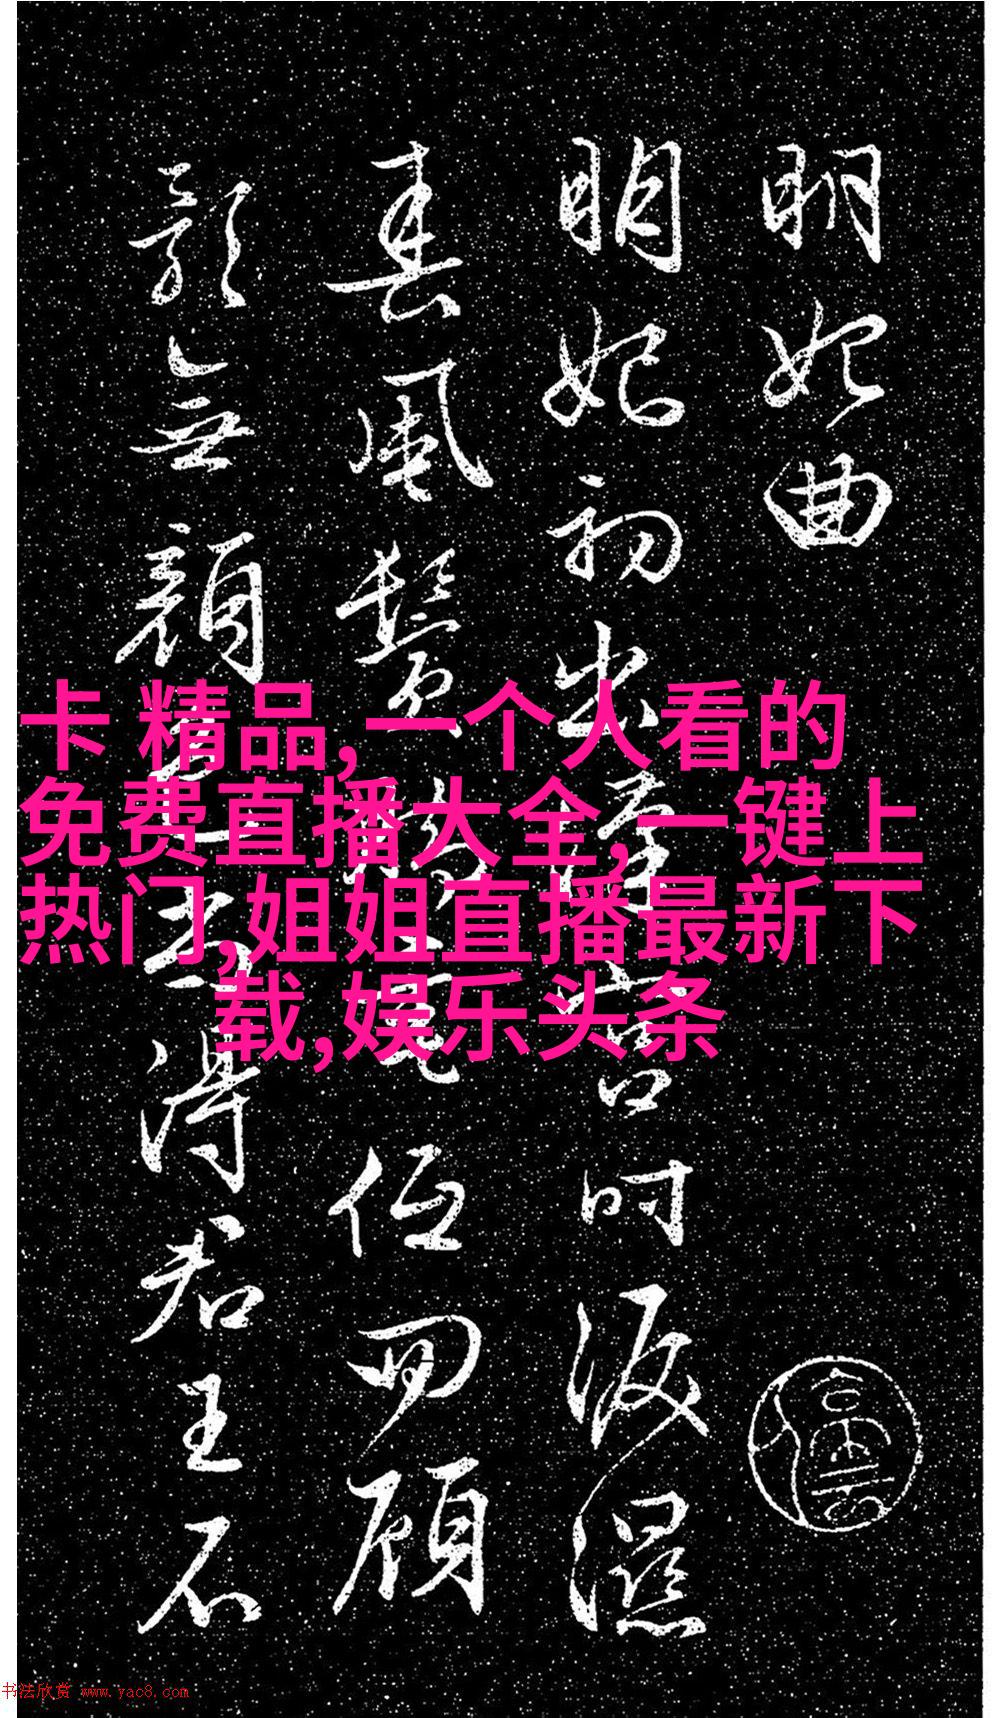 明妃曲
明妃初出漢宮時淚濕
春風鬢腳垂低回顧
影無顏色尚得君王不
卡 精品,一个人看的
免费直播大全,一键上
热门,姐姐直播最新下
载,娱乐头条
书法欣赏 www.yac8.com